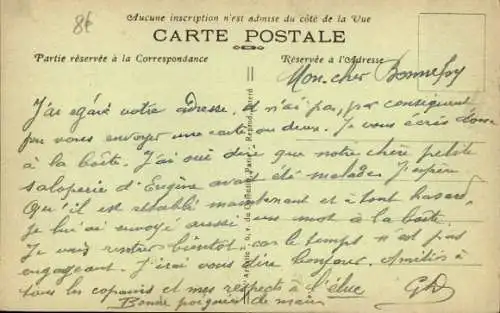 8f
Aucune inscription n'est admise du côté de la Vue
CARTE POSTALE
Partie réservée à la Correspondance
Réservée à l'Adresse
Mon cher Bonnefoy
J'ai égaré votre adresse et n'ai pas, par conséquent
pu vous envoyer une carte ou deux. Je vous écris donc
à la boîte. J'ai ouï dire que notre chère petite
saloperie d'Eugène avait été malade. J'espère
qu'il est rétabli maintenant et à tout hasard,
je lui ai envoyé aussi un mot à la boîte.
Je vais rentrer bientôt car le temps n'est pas
engageant. J'irai vous dire bonjour. Amitiés à
tous les copains et mes respects à l'élue
Bonne poignée de main